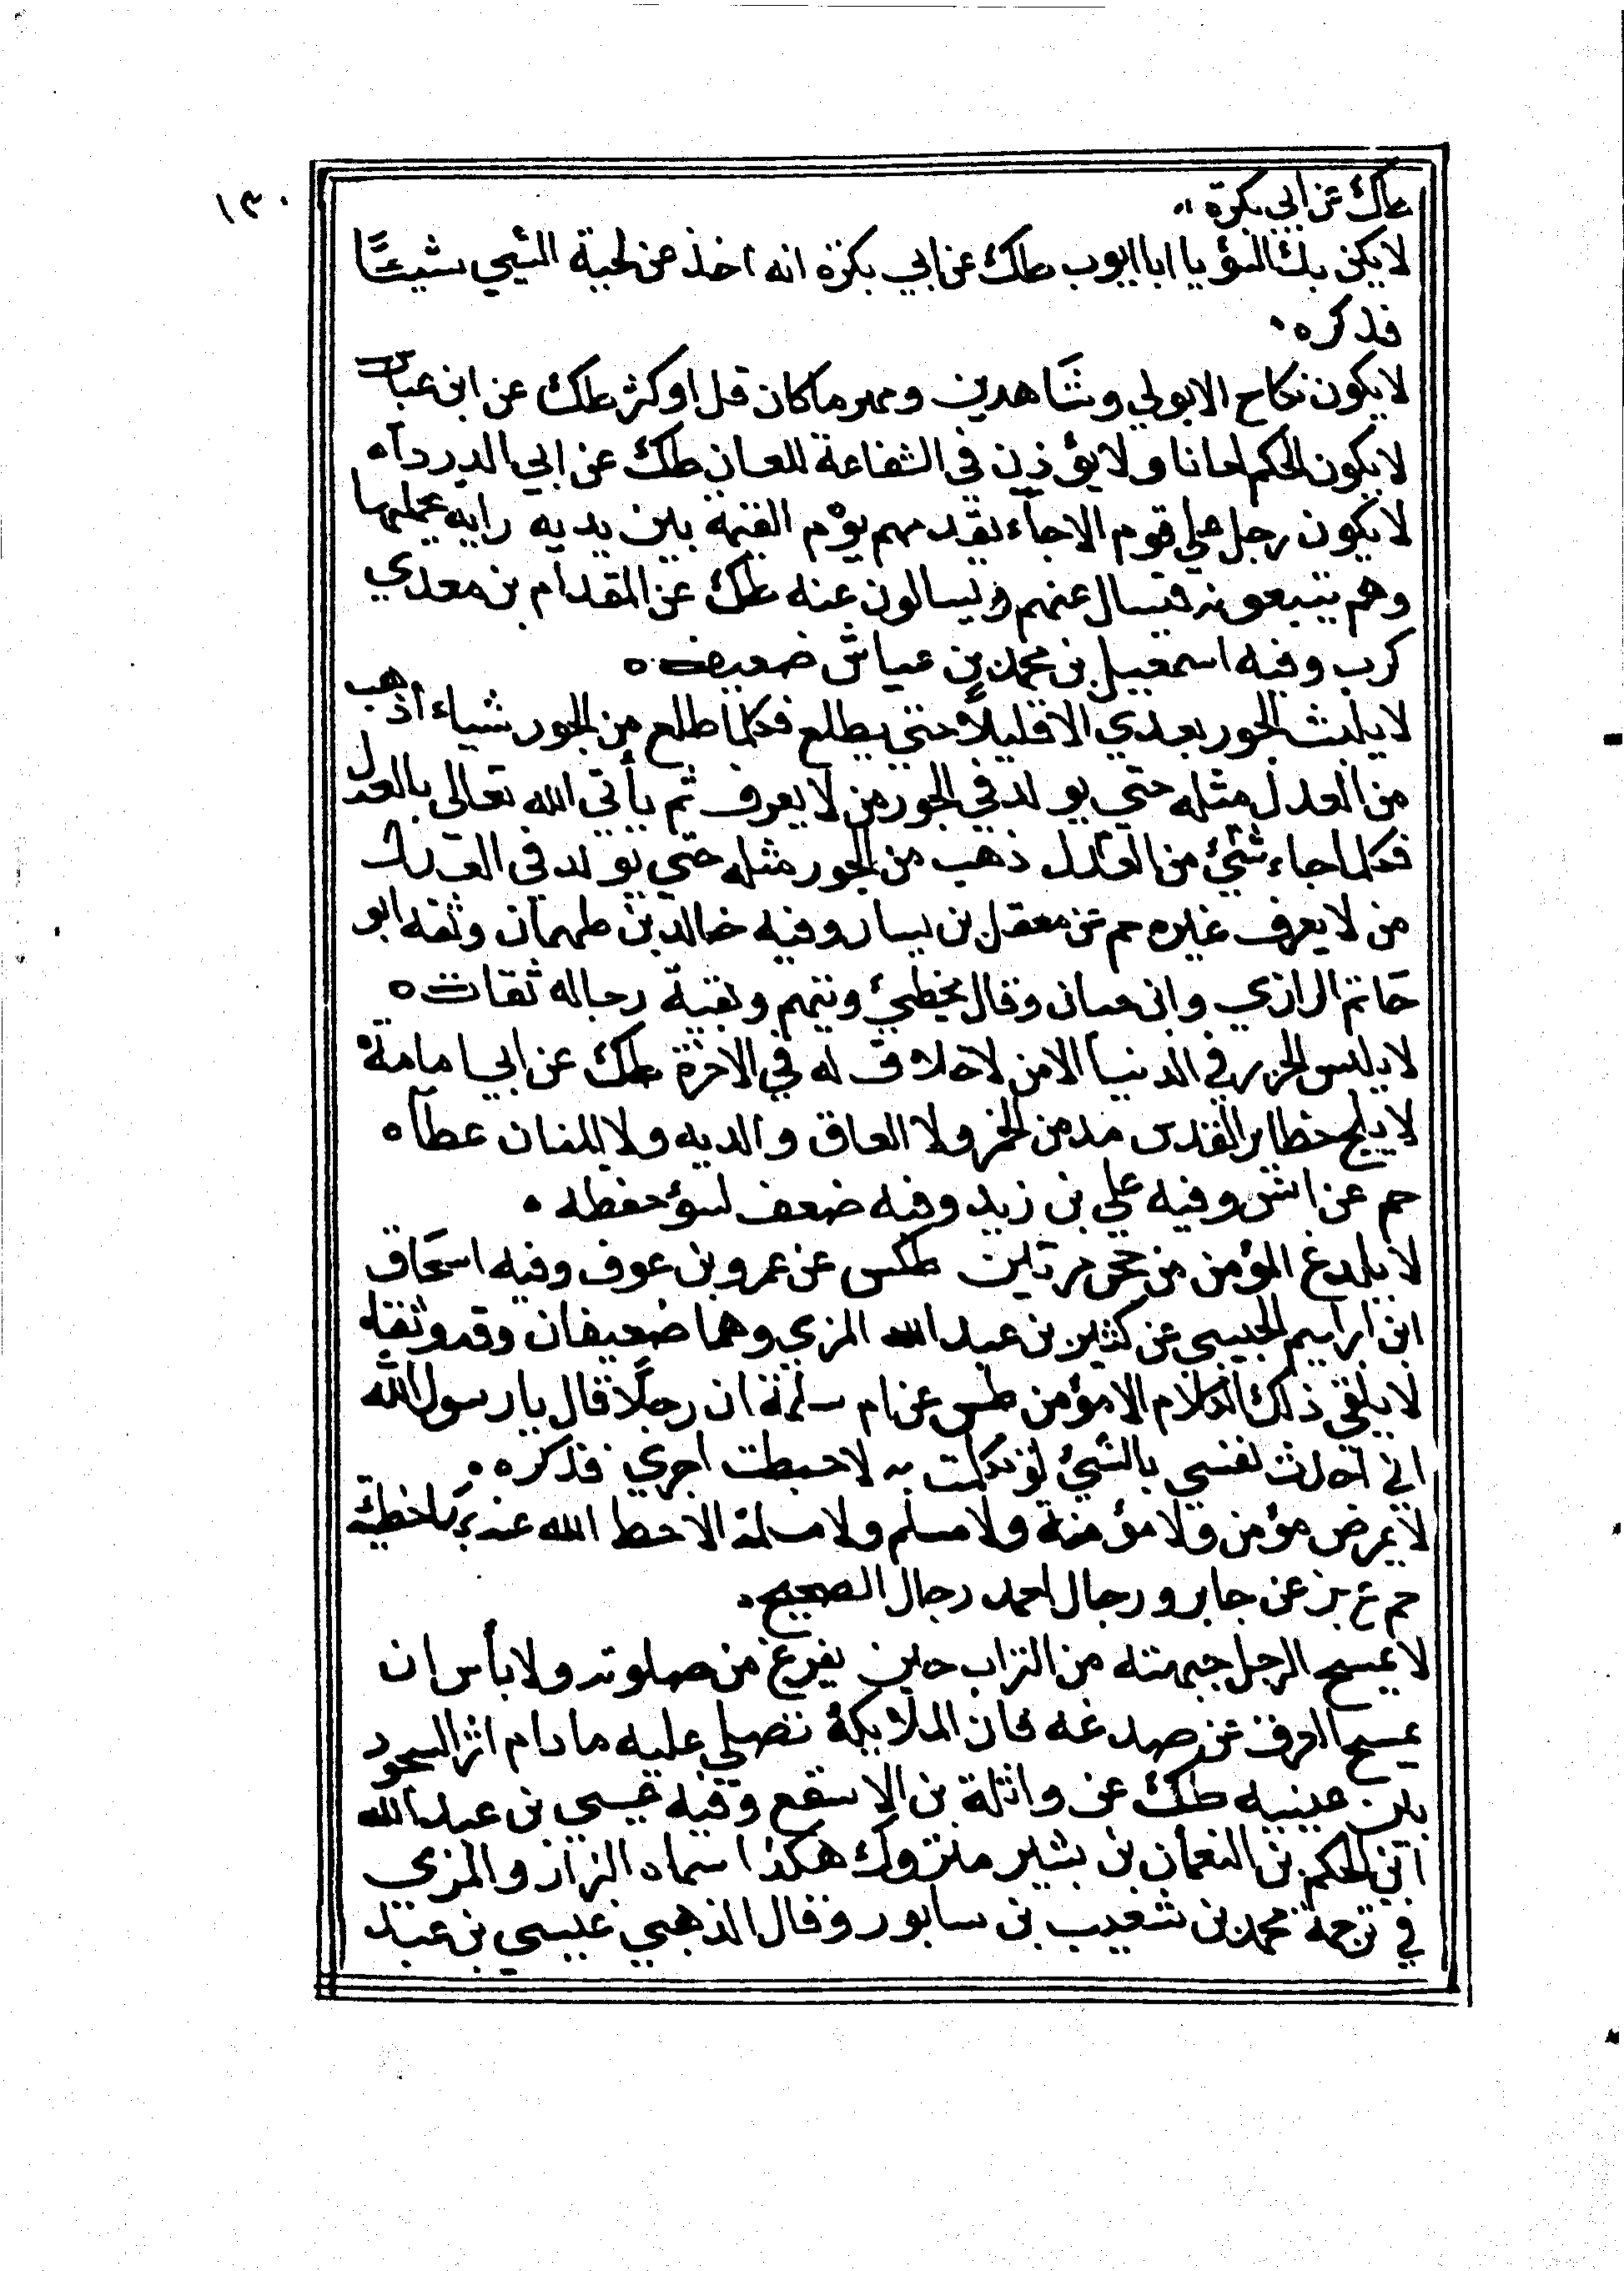 ١٣٠
طك عن ابي بكرة
لا يكن بك السؤ يا ابا ايوب طك عن ابي بكرة انه اخذ من لحية النبي شيئًا
فذكره
لا يكون نكاح الا بولي وشاهدين ومهر ما كان قل او كثر طك عن ابن عباس
لا يكون الحكم لعانا ولا يؤذن في الشفاعة للعان طك عن ابي الدرداء
لا يكون رجل على قوم الا جاء يقدمهم يوم القيمة بين يديه راية يحملها
وهم يتبعونه فيسال عنهم ويسالون عنه طك عن المقدام بن معدي
كرب وفيه اسمعيل بن محمد بن عياش ضعيف
لا يلبث الجور بعدي الا قليلاً حتي يطلع فكلما طلع من الجور شياء ذهب
من العدل مثله حتي يولد في الجور من لا يعرف ثم يأتي الله تعالى بالعدل
فكلما جاء شئ من العدل ذهب من الجور مثله حتي يولد في العدل
من لا يعرف غيره حم عن معقل بن يسار وفيه خالد بن طهمان وثقه ابو
حاتم الرازي وابن حبان وقال يخطئ ويتهم وبقية رجاله ثقات
لا يلبس الحرير في الدنيا الا من لا خلاق له في الاخرة طك عن ابي امامة
لا يلج حظاير القدس مدمن الخمر ولا العاق والديه ولا المنان عطاه
حم عن انس وفيه علي بن زيد وفيه ضعف لسؤ حفظه
لا يلدغ المؤمن من جحر مرتين طكس عن عمرو بن عوف وفيه اسحاق
ابن ابراهيم الحبيبي عن كثير بن عبد الله المزي وهما ضعيفان وقد وثقا
لا يلقي ذلك الكلام الا مؤمن طس عن ام سلمة ان رجلًا قال يا رسول الله
اني احدث نفسي بالشئ لو تكلمت به لاحبطت اجري فذكره
لا يمرض مؤمن ولا مؤمنة ولا مسلم ولا مسلمة الا حط الله عنه خطيئته
حم ع بز عن جابر ورجال احمد رجال الصحيح
لا يمسح الرجل جبهته من التراب حين يفرغ من صلوته ولا بأس ان
يمسح العرق عن صدغه فان الملايكة تصلي عليه ما دام اثر السجود
بين عينيه طك عن واثلة بن الاسقع وفيه عيسي بن عبد الله
ابن الحكم بن النعمان بن بشير متروك هكذا سماه البزار والمزي
في ترجمة محمد بن شعيب بن سابور وقال الذهبي عيسي بن عبد